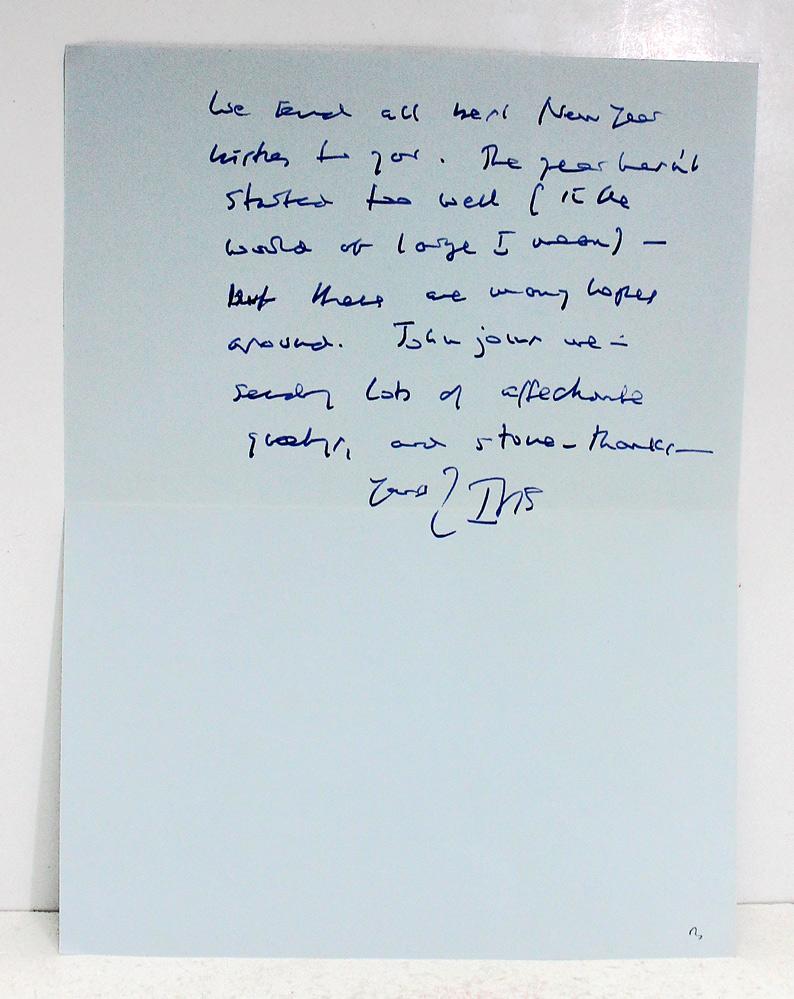 We send all best New Year
wishes to you. The year hasn't
started too well (in the
world at large I mean) —
but there are many hopes
around. John joins me in
sending lots of affectionate
greetings, and stone-thanks —
Yours, Iris